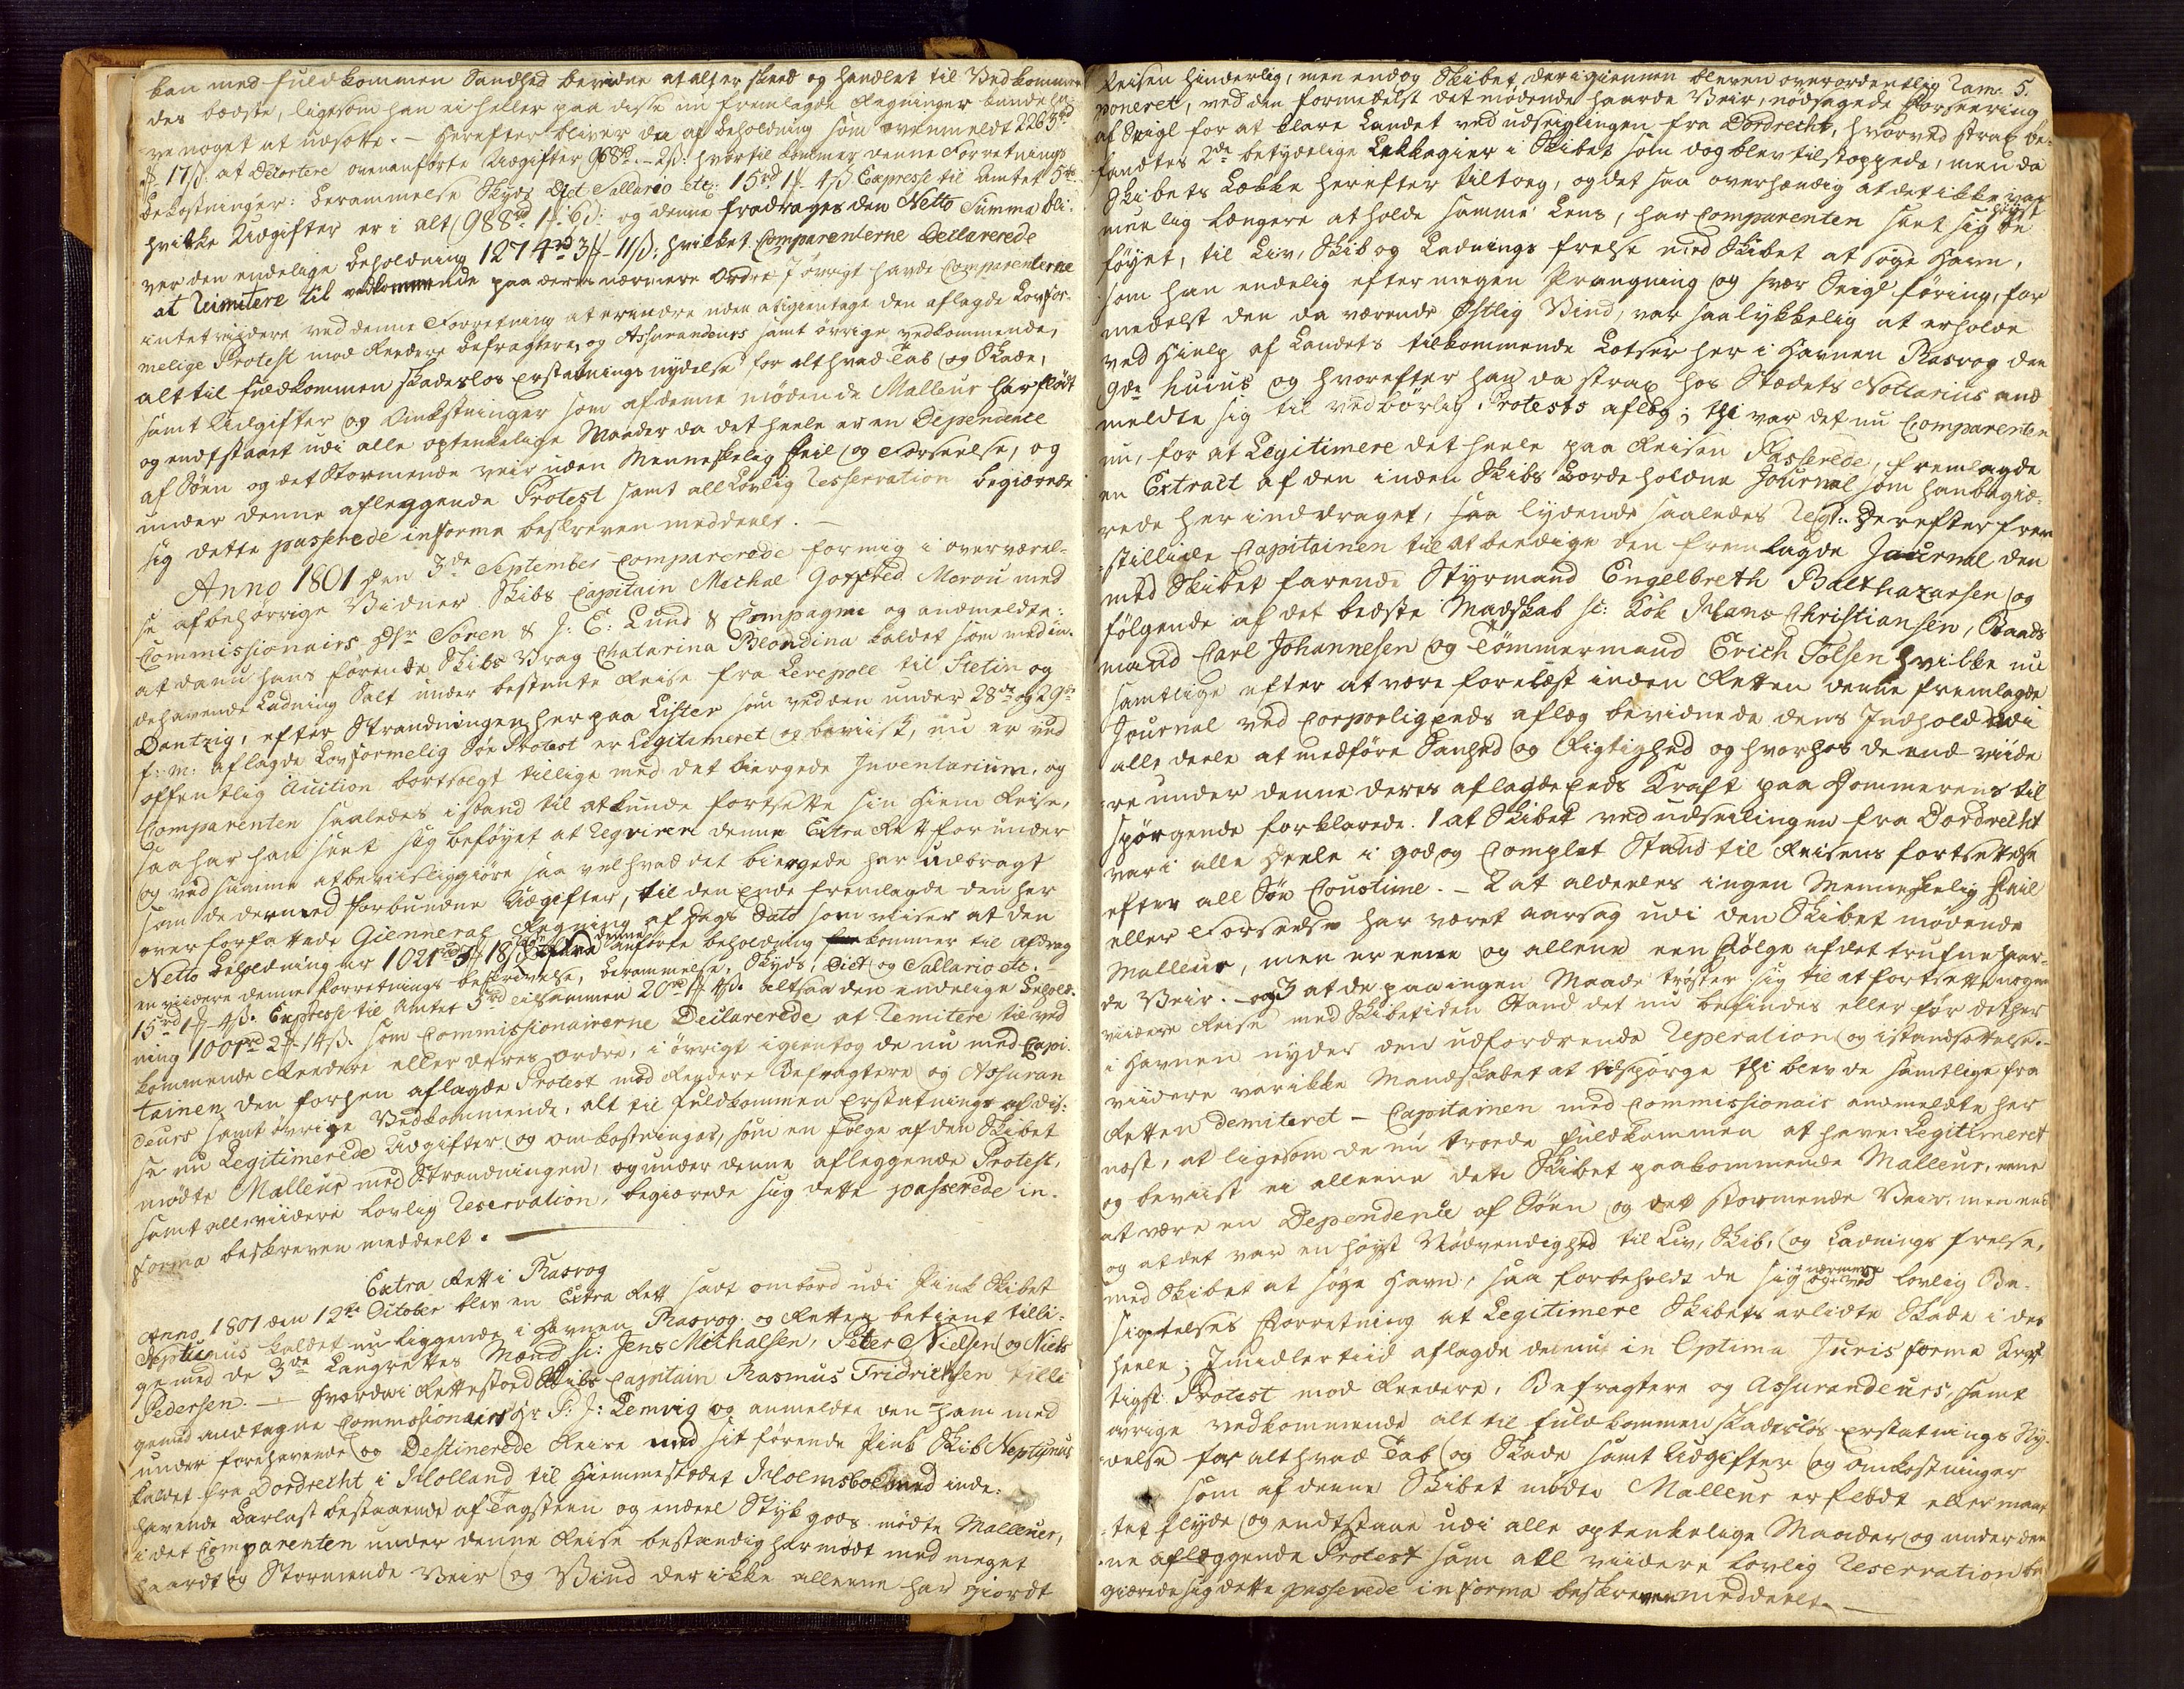 kan med fuldkommen Sandhed bevidne at alt er skeed og handlet til Vedkommen
des bedste, ligesom han ei heller paa disse nu fremlagde Regninger kunde ha
ve noget at udsætte. – Herefter bliver da af Beholdning som ovenmeldt 2263rd
17ß: at Decortere ovenanførte Udgifter 968rd. – 2ß: hvortil kommer denne Forretnings
Bekostninger: Berammelse Skyds Diet Sallario etc: 15rd 1 4ß Expresse til Amtet 5rd
hvilke Udgifter er i alt 988rd 1 6ß: og denne fradrages den Netto Summa bli-
ver den endelige Beholdning 1274rd 3 – 11ß: hvilket Comparenterne Declarerede
at Remittere til vedkommende paa deres nærmere Ordre. I øvrigt havde Comparenterne
intet viidere ved denne Forretning at erindre uden at igientage den aflagde Lovfor-
melige Protest mod Reedere Befragtere, og Assurandeurs samt øvrige vedkommende,
alt til fuldkommen skadesløs Erstatnings nydelse for alt hvad Tab og Skade,
samt Udgifter og Omkostninger som af denne mødende Malleur har flødt
og endtstaaet udi alle optenkelige Maader da det heele er en Dependence
af Søen og det Stormende Veir uden Menneskelig Feil og Forseelse, og
under denne afleggende Protest samt all Lovlig Reservation begierede
sig dette passerede in forma beskreven meddeelt. –
Anno 1801 den 3de September Comparerede for mig i overværel-
se af behørrige Vidner Skibs Capitain Michal Gotfred Morou med
Commissionairs Hr Søren & J: E: Lund & Compagnie og anmeldte:
at da nu hans førende Skibs Vrag Chatarina Blondina kaldet som med in-
dehavende Ladning Salt under bestemte Reise fra Leverpoll til Stetin og
Dantzig, efter Strandningen her paa Lister som ved den under 28de og 29de
f: m: aflagde Lovformelig Søe Protest er Legitimeret og beviist, nu er ved
offentlig Auction bortsolgt tillige med det biergede Inventarium, og
Comparenten saaledes i stand til at kunde fortsette sin Hiem Reise,
saa har han seet sig beføyet at Reqvirere denne Extra Rett for under
og ved samme at beviisliggiøre saa vel hvad det biergede har udbragt
som de dermed forbundne Udgifter, til den Ende fremlagde den her
over forfattede Giennerag Regning af Dags Dato som viser at den
Netto Beholdning er 1021rd 3 18ß denne anførte beholdning kommer til afdrag
en viidere denne Forretnings beskrivelse, Berammelse, Skyds, Diet og Sallario etc.
15rd 1 4ß. Expresse til Amtet 5rd tilsammen 20rd 1 4ß. altsaa den endelige Behold-
ning 1001rd 2 14ß. som Commissionairerne Declarerede at Remitere til ved
kommende Reedere eller deres Ordre, i øvrigt igientog de nu med Capi-
tainen den forhen aflagde Protest mod Reedere Befragtere og Assuran
deurs samt øvrige Vedkommende, alt til fuldkommen Erstatnings af dis-
se nu Legitimerede Udgifter og omkostninger, som en Følge af den Skibet
mødte Malleur med Strandningen, og under denne afleggende Protest,
samt all viidere Lovlig Reservation, begierede sig dette passerede in-
forma beskreven meddeelt. –
Extra Rett i Rasvog
Anno 1801 den 12te October blev en Extra Rett sadt ombord udi Pink Skibet
Neptunus kaldet nu liggende i Havnen Rasvog, og Retten betient tilli-
gemed de 3de Laugrettes Mænd sc: Jens Michalsen, Peter Nielsen og Niels
Pedersen. – Hvordi Rettestoed Skibs Capitain Rasmus Fridrichsen tilli
gemed andtagne Commissionairs Hr P: J: Lemvig og anmeldte den Ham med
under forehavende og Destinerede Reise med sit førende Pink Skib Neptunus
kaldet fra Dordrecht i Holland til Hiemmestædet Holmsboe med inde-
havende Barlast bestaaende af Tagsteen og endeel Stykgods mødte Malleuer,
i det Comparenten under denne Reise bestændig har mødt med meget
haardt og Stormende Veir og Vind der ikke alleene har giordt
Reisen hinderlig, men endog Skibet derigiennem bleven overordentlig Ram- 5.
poneret, ved den formedelst det mødende haarde Veir, nødsagede Forceering
af Seigl for at klare Landet ved udseiglingen fra Dordrecht, hvorved strax be-
fandtes 2de betydelige Lekkagier i Skibet som dog blev tilstoppede, men da
Skibets Lekke herefter tiltoeg, og det saa overhændig at det ikke var
muelig længere at holde samme Lens, har Comparenten seet sig høyst be
føyet, til Liv, Skib og Ladnings frelse med Skibet at søge Havn,
som han endelig efter megen Prangning og svær Seigl føring, for
medelst den da værende Østlig Vind, var saa lykkelig at erholde
ved Hielp af Landets tilkommende Lotser her i Havnen Rasvog den
9de huius og hvorefter han da strax hos Stædets Nottarius and
meldte sig til vedbørlig Protests aflæg; thi var det nu Comparenten
nu, for at Legitimere det heele paa Reisen Passerede, fremlagde
en Extract af den inden Skibs Borde holdne Journal som han begie-
rede her inddraget, saa lydende saaledes Regl:. Derefter frem
stillede Capitainen til at beedige den fremlagde Journal den
med Skibet farende Styrmand Engelbreth Balthazarsen og
følgende af det beste Madskab sc: Kok Hans Christiansen, Baads
mand Carl Johannesen og Tømmermand Erich Tolsen hvilke nu
samtlige efter at være forelæst inden Retten denne fremlagde
Journal ved Corporlig Eeds aflæg bevidnede dens Indhold udi
alle deele at medføre Sandhed og Rigtighed og hvorhos de end viide
re under denne deres aflagde Eeds Kraft paa Dommerens til
spørgende forklarede. 1 at Skibet ved udseilingen fra Dordrecht
var i alle Deele i god og Complet Stand til Reisens fortsettelse
efter all Søe Coustime. – 2 at alderdeles ingen Menneskelig Feil
eller Forseelse har været aarsag udi den Skibet mødende
Malleur, men er eene og allene een Følge af det trufne haar-
de Veir. – og 3 at de paa ingen Maade trøster sig til at fortsette nogen
viidere Reise med Skibet i den Stand det nu befindes eller før det her
i Havnen nyder den udfordrende Reperation og istandsettelse. –
viidere var ikke Mandskabet at tilspørge thi blev de samtlige fra
Retten Demitteret – Capitainen med Commissionair anmeldte her
næst, at ligesom de nu troede fuldkommen at have Legitimeret
og beviist ei alleene dete Skibet paakommende Malleur, eene
at være en Dependence af Søen og det stormende Veir, men end
og at det var en høyst Nødvendighed til Liv, Skib, og Ladnings frelse,
med Skibet at søge Havn, saa forbeholdt de sig i nærmere og ved lovlig Be-
sigtelses Forretning at Legitimere Skibets erlidte Skade i det
heele; Imidlertiid aflagde de nu in Optima Juris forma Kraf
tigst Protest mod Reedere, Befragtere og Assurandeurs, samt
øvrige vedkommende alt til fuldkommen skadesløs Erstatnings Ny-
delse for alt hvad Tab og Skade samt Udgifter og omkostninger
som af denne Skibet mødte Malleur er flødt eller maat
tet flyde og endtstaae udi alle optenkelige Maader og under den
ne afleggende Protest som all viidere lovlig Reservation be
gierede sig dette passerede in forma beskreven meddeelt. –